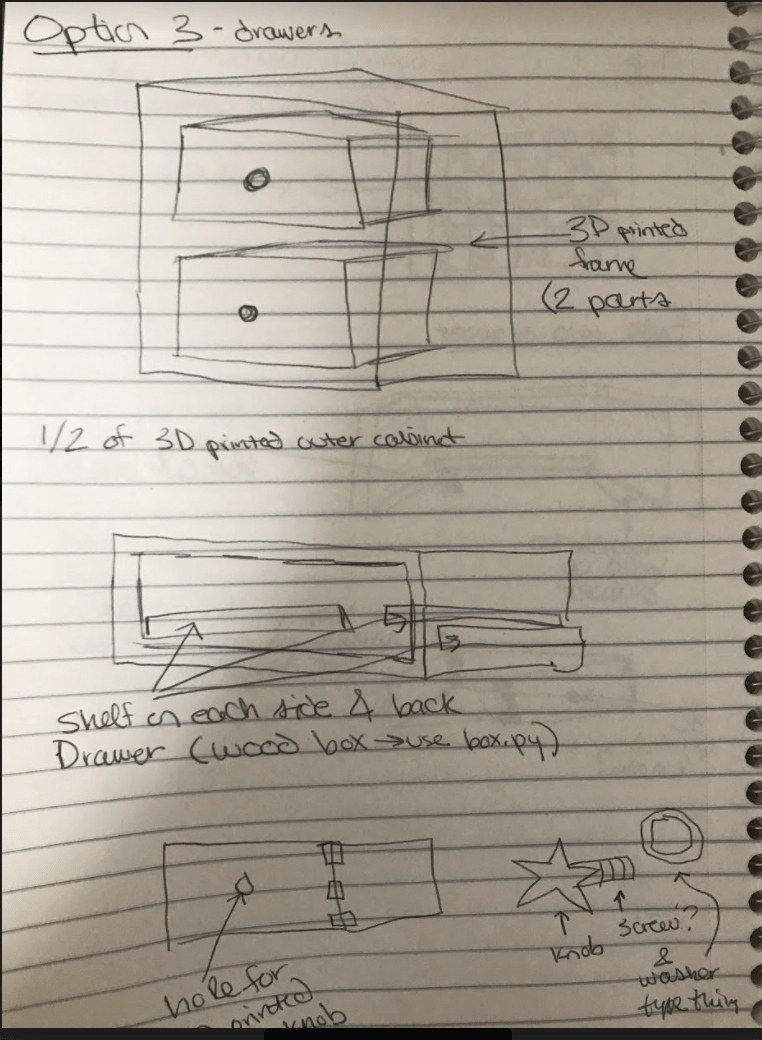 Option 3 - drawers
3D printed
frame
(2 parts
1/2 of 3D printed outer cabinet
Shelf on each side & back
Drawer (wood box → use box.py)
hole for
printed
knob
Knob
Screw?
&
washer
type thing